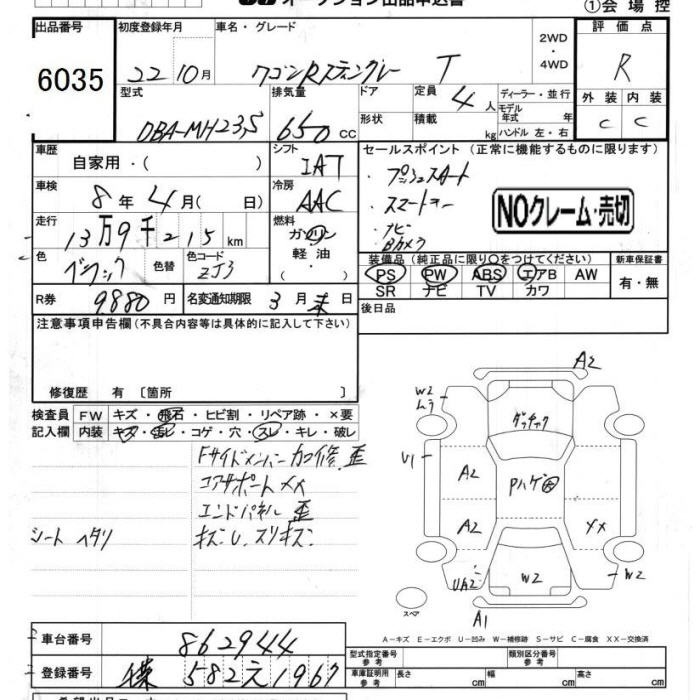 オークション出品申込書
①会場控
出品番号
6035
初度登録年月
22 10月
車名・グレード
ワゴンRスティングレー T
2WD
・
4WD
評価点
R
外装 内装
C C
型式
DBA-MH23S
排気量
650 cc
ドア
形状
定員 4人
積載 kg
ディーラー・並行
モデル
年式 年
ハンドル 左・右
車歴
自家用・( )
シフト
IAT
車検
8年4月( 日)
冷房
AAC
走行
13万9千215km
燃料
ガソリン
軽油
・( )
色
ブラック
色替
色コード
ZJ3
R券 9880円
名変通知期限 3月末日
セールスポイント (正常に機能するものに限ります)
・プッシュスタート
・スマートキー
・ナビ
・Bカメラ
NOクレーム・売切
装備品(純正品に限り○をつけてください)
PS PW ABS エアB AW
SR ナビ TV カワ
新車保証書
有・無
後日品
注意事項申告欄(不具合内容等は具体的に記入して下さい)
修復歴 有〔箇所 〕
検査員
記入欄
FW キズ・飛石・ヒビ割・リペア跡・×要
内装 キズ・汚レ・コゲ・穴・スレ・キレ・破レ
Fサイドメンバー加修、歪
コアサポートメメ
エンドパネル歪
シートヘタリ
キズU、スリキズ
A2
W2
ムラ
U1
ゲッチャク
A2
Pハゲ
A2
XX
UA2
W2
W2
A1
スペア
A-キズ E-エクボ U-凹み W-補修跡 S-サビ C-腐食 XX-交換済
車台番号
862944
登録番号
582え1967
型式指定番号
参考
類別区分番号
参考
車庫証明用
参考
長さ cm
幅 cm
高さ cm